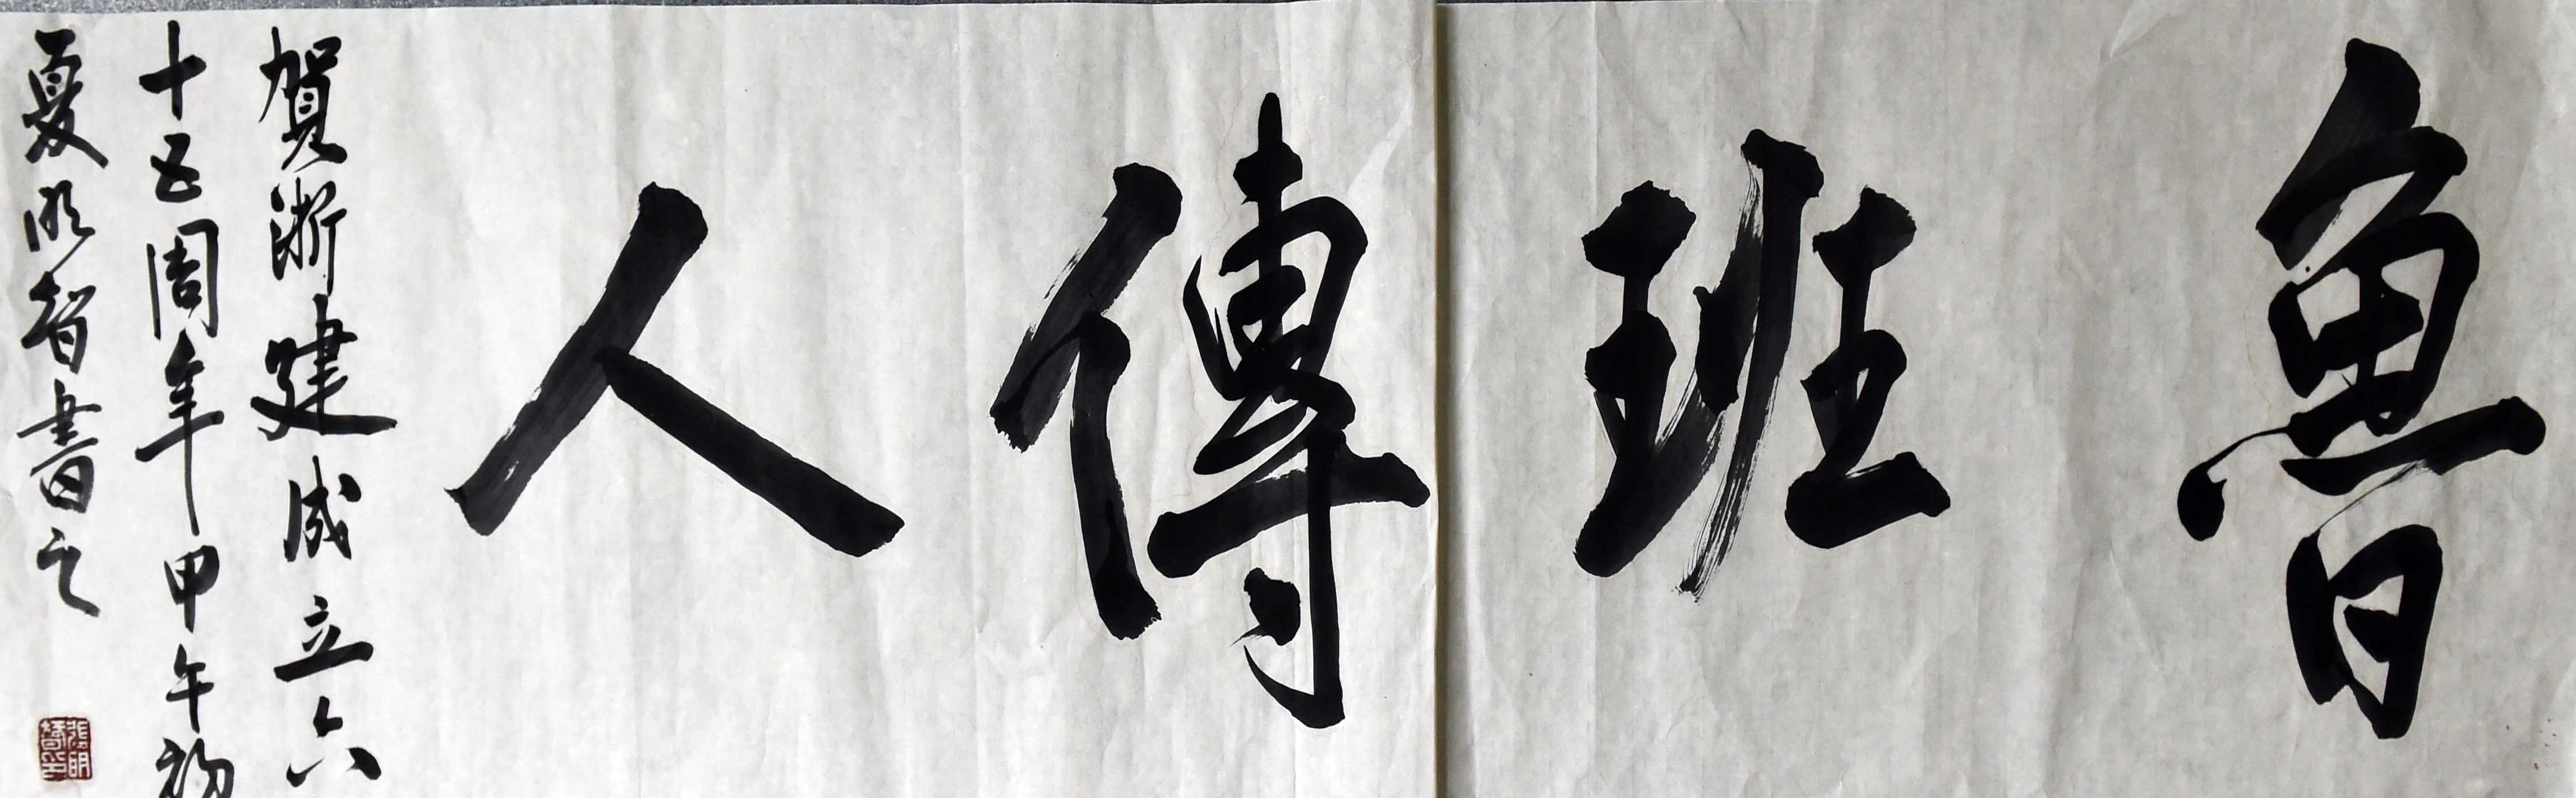 魯班傳人
賀浙建成立六
十五周年甲午初
夏明智書之
張明智印